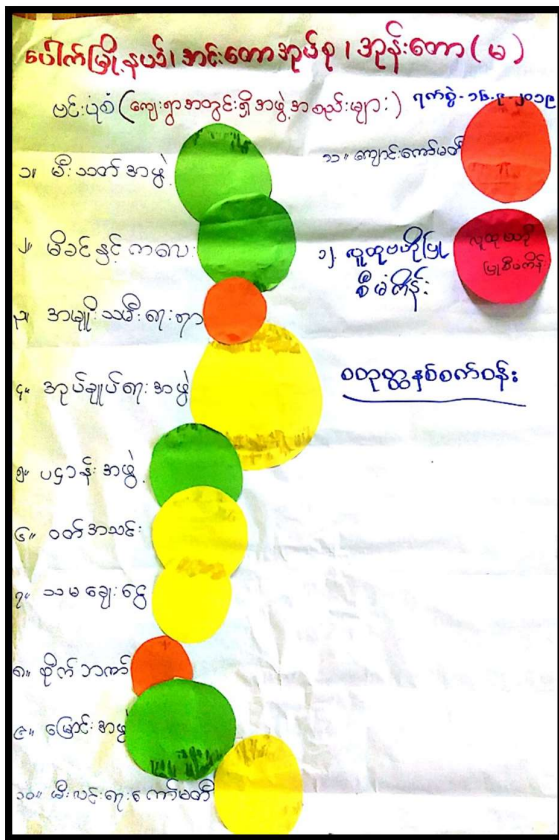 ပေါက်မြို့နယ်၊ အင်းတောအုပ်စု၊ အုန်းတော (မ)
ဗင်းပုံစံ (ကျေးရွာအတွင်းရှိအဖွဲ့အစည်းများ)
ရက်စွဲ - ၁၆.၉.၂၀၁၉
၁။ မီးသတ်အဖွဲ့
၂။ မိခင်နှင့်ကလေး
၃။ အမျိုးသမီးရေးရာ
၄။ အုပ်ချုပ်ရေးအဖွဲ့
၅။ ပဌာန်းအဖွဲ့
၆။ ဝတ်အသင်း
၇။ သမချေးငွေ
၈။ စိုက်ဘဏ်
၉။ မြောင်းအဖွဲ့
၁၀။ မီးလင်းရေးကော်မတီ
၁၁။ ကျောင်းကော်မတီ
၁၂. လူထုဗဟိုပြု
စီမံကိန်း
လူထုဗဟို
ပြုစီမံကိန်း
စတုတ္ထနှစ်စက်ဝန်း